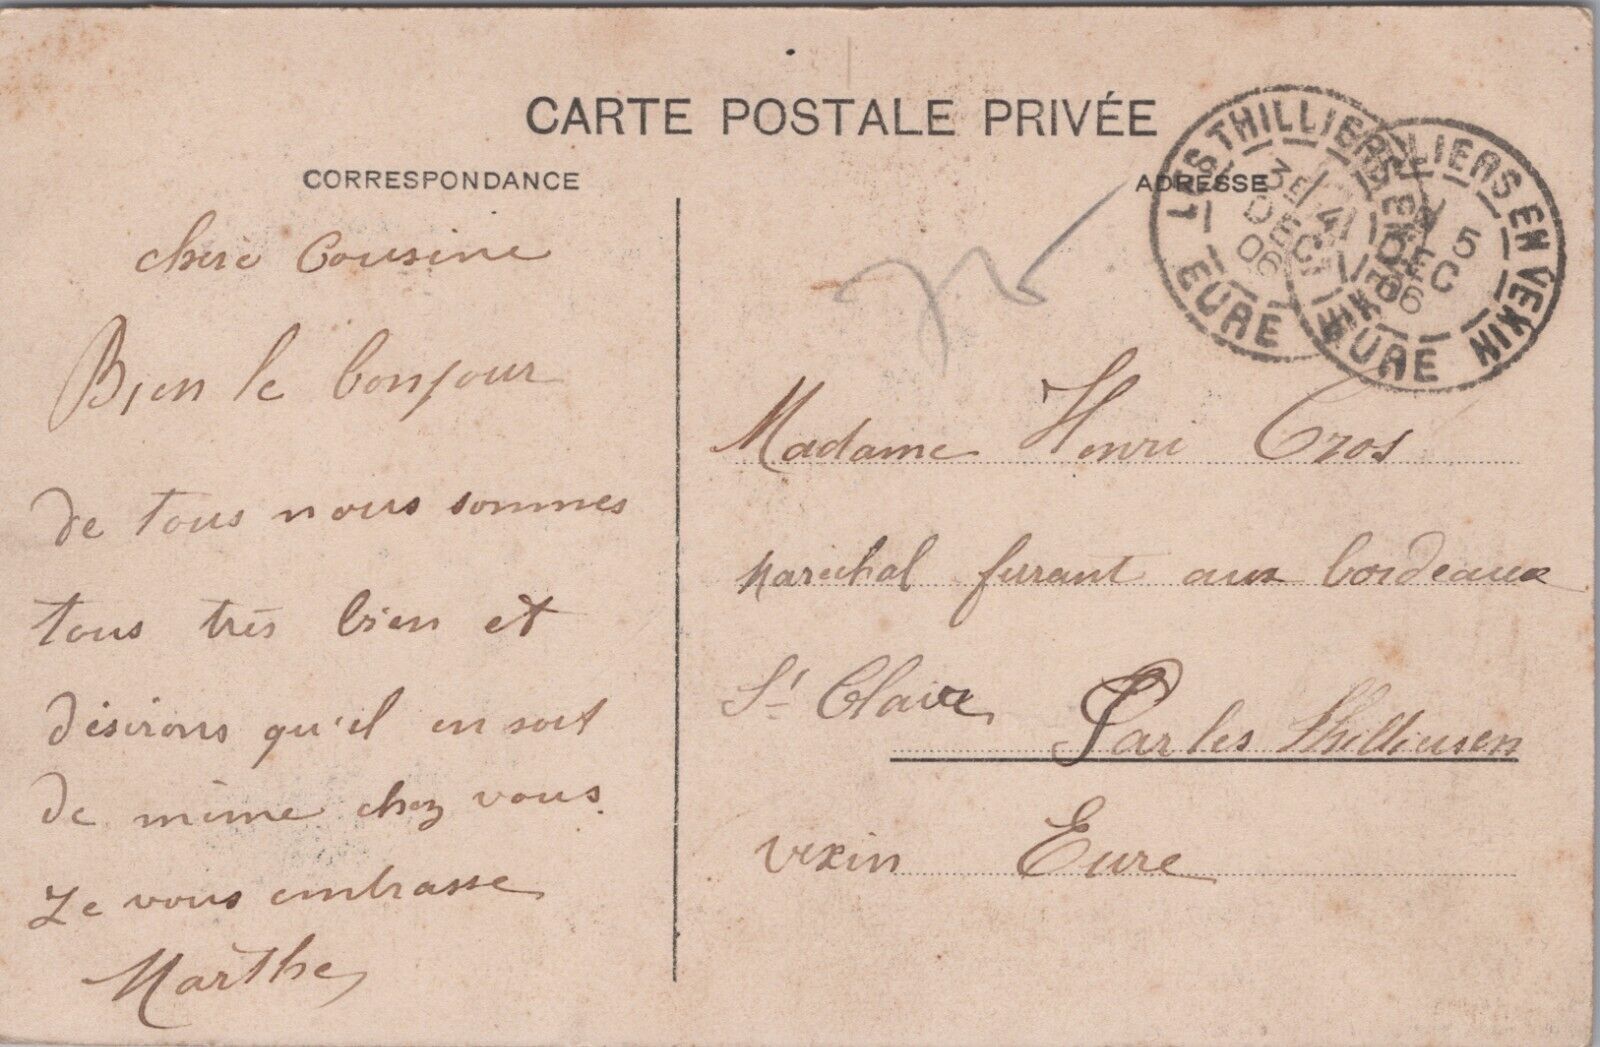 CARTE POSTALE PRIVÉE
CORRESPONDANCE
chere Cousine
Bien le bonjour
de tous nous sommes
tous très bien et
désirons qu'il en soit
de même chez vous.
Je vous embrasse
Marthe
ADRESSE
LES THILLIERS EN VEXIN
3E
4 DEC
06
EURE
LES THILLIERS EN VEXIN
5
DEC
06
EURE
Madame Henri Cros
Marechal ferrant aux bordeaux
St Claire Par les Thilliersen
vexin Eure